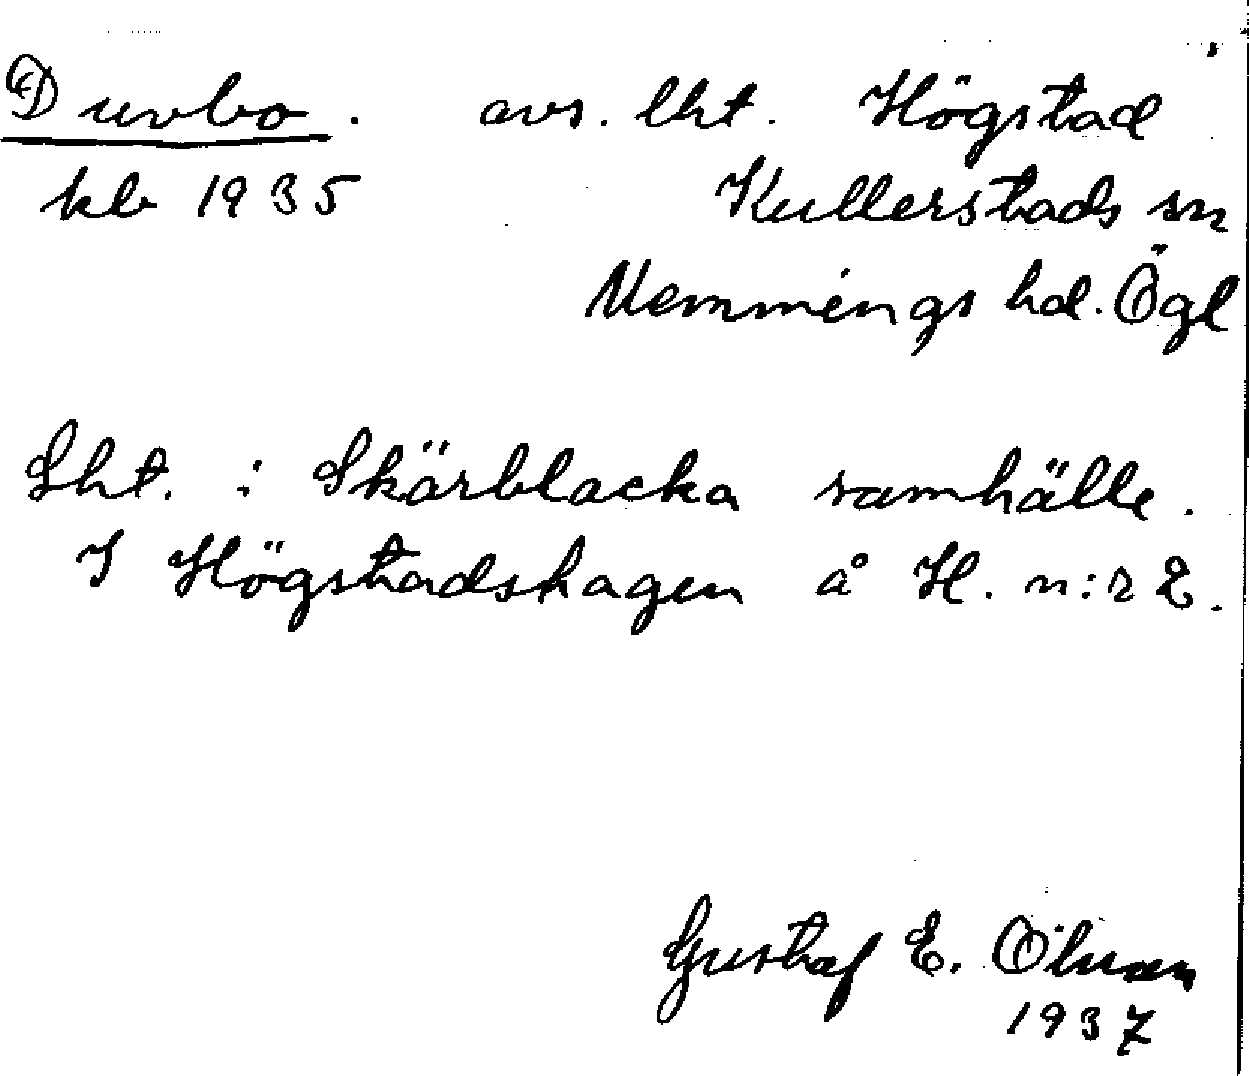 Duvbo. avs. lht. Högstad
kb 1935 Kullerstads sn
Memmings hd. Ögl
Lht. i Skärblacka samhälle.
I Högstadshagen å H. n:r 2.
Gustaf E.
1937